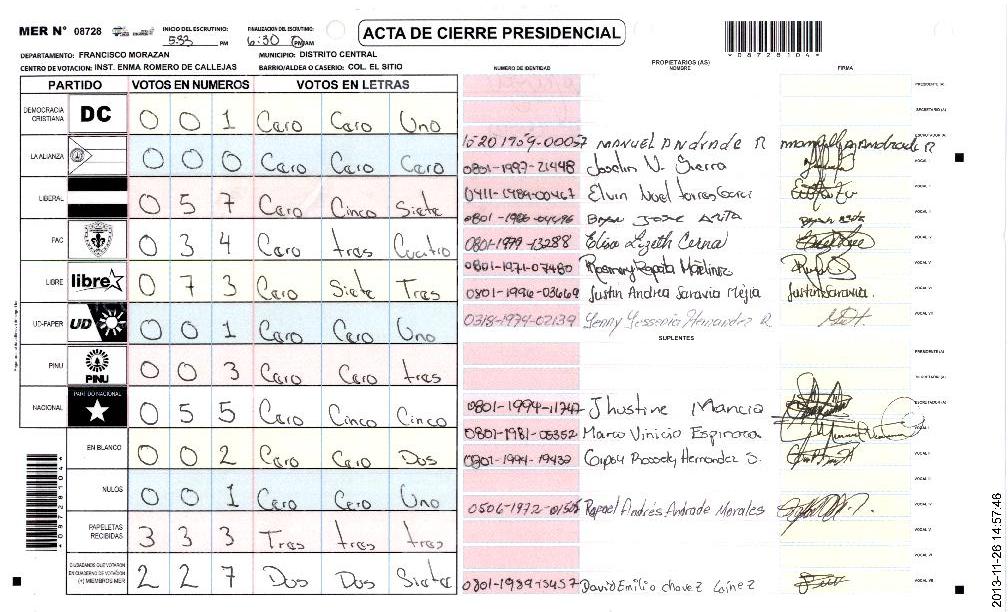 MER N° 08728
INICIO DEL ESCRUTINIO: 5:33 PM
FINALIZACION DEL ESCRUTINIO: 6:30 PM/AM
ACTA DE CIERRE PRESIDENCIAL
*08728104*
DEPARTAMENTO: FRANCISCO MORAZAN
MUNICIPIO: DISTRITO CENTRAL
CENTRO DE VOTACION: INST. ENMA ROMERO DE CALLEJAS
BARRIO/ALDEA O CASERIO: COL. EL SITIO
PARTIDO VOTOS EN NUMEROS VOTOS EN LETRAS
DEMOCRACIA CRISTIANA DC 0 0 1 Cero Cero Uno
LA ALIANZA 0 0 0 Cero Cero Cero
LIBERAL 0 5 7 Cero Cinco Siete
PAC 0 3 4 Cero tres Cuatro
LIBRE libre 0 7 3 Cero Siete Tres
UD-FAPER UD 0 0 1 Cero Cero Uno
PINU PINU 0 0 3 Cero Cero tres
NACIONAL PARTIDO NACIONAL 0 5 5 Cero Cinco Cinco
EN BLANCO 0 0 2 Cero Cero Dos
NULOS 0 0 1 Cero Cero Uno
PAPELETAS RECIBIDAS 3 3 3 Tres tres tres
CIUDADANOS QUE VOTARON EN CUADERNO DE VOTACION (+) MIEMBROS MER 2 2 7 Dos Dos Siete
PROPIETARIOS (AS)
NUMERO DE IDENTIDAD NOMBRE FIRMA
PRESIDENTE (A)
SECRETARIO (A)
1520 1959-00057 MANUEL ANDRADE R
0801-1997-21448 Joselin V. Sierra VOCAL I
Elvin Noel
0801-1986-04496 Bryan JOSE
0801-1979-13288 Elisa Lizeth Cerna VOCAL IV
0801-1971-07480 Rosmery Zapata Martinez VOCAL V
0801-1996-03669 Justin Andrea Saravia Mejia Justin Saravia. VOCAL VI
0318-1979-02139 Yenny Yessenia Hernandez R. VOCAL VII
SUPLENTES
PRESIDENTE (A)
SECRETARIO (A)
0801-1994-11747 Jhustine Mancia ESCRUTADOR (A)
0801-1981-05352 Marco Vinicio Espinoza VOCAL I
0801-1994-19432 Hernandez S. VOCAL II
0506-1972-01505 Rafael Andrés Andrade Morales
VOCAL V
VOCAL VI
David Emilio chavez Lainez VOCAL VII
*08728104*
2013-11-26 14:57:46